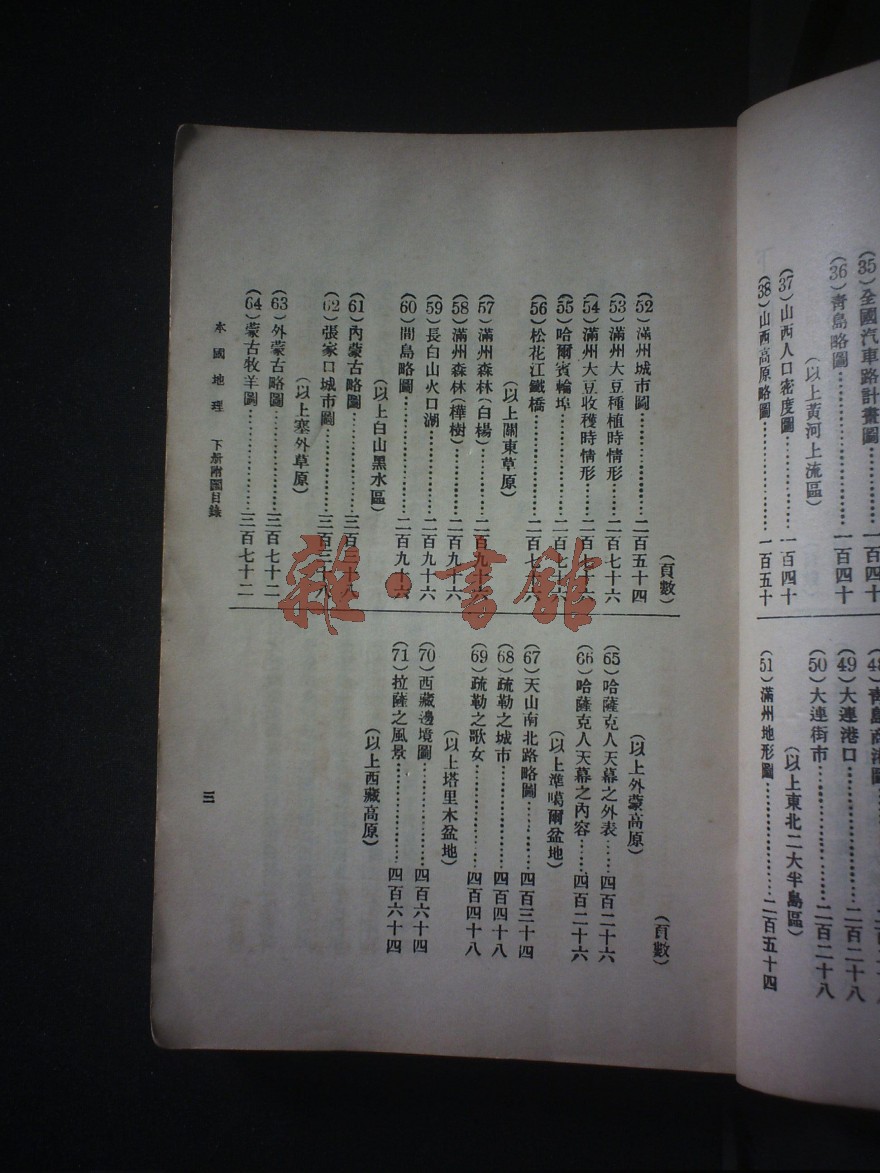 (35)全國汽車路計畫圖……一百四十
(36)靑島略圖……一百四十
(以上黃河上流區)
(37)山西人口密度圖……一百四十
(38)山西高原略圖……一百五十
(49)大連港口……二百二十八
(50)大連街市……二百二十八
(以上東北二大半島區)
(51)滿州地形圖……二百五十四
(頁數)
(52)滿州城市圖……二百五十四
(53)滿州大豆種植時情形……二百七十六
(54)滿州大豆收穫時情形……二百七十六
(55)哈爾賓輪埠……二百七十六
(56)松花江鐵橋……二百七十六
(以上關東草原)
(57)滿州森林(白楊)……二百九十六
(58)滿州森林(樺樹)……二百九十六
(59)長白山火口湖……二百九十六
(60)間島略圖……二百九十六
(以上白山黑水區)
(61)內蒙古略圖……三百三十八
(62)張家口城市圖……三百三十八
(以上塞外草原)
(63)外蒙古略圖……三百七十二
(64)蒙古牧羊圖……三百七十二
(頁數)
(以上外蒙高原)
(65)哈薩克人天幕之外表……四百二十六
(66)哈薩克人天幕之內容……四百二十六
(以上準噶爾盆地)
(67)天山南北路略圖……四百三十四
(68)疏勒之城市……四百四十八
(69)疏勒之歌女……四百四十八
(以上塔里木盆地)
(70)西藏邊境圖……四百六十四
(71)拉薩之風景……四百六十四
(以上西藏高原)
本國地理 下册附圖目錄
三
雜·書館